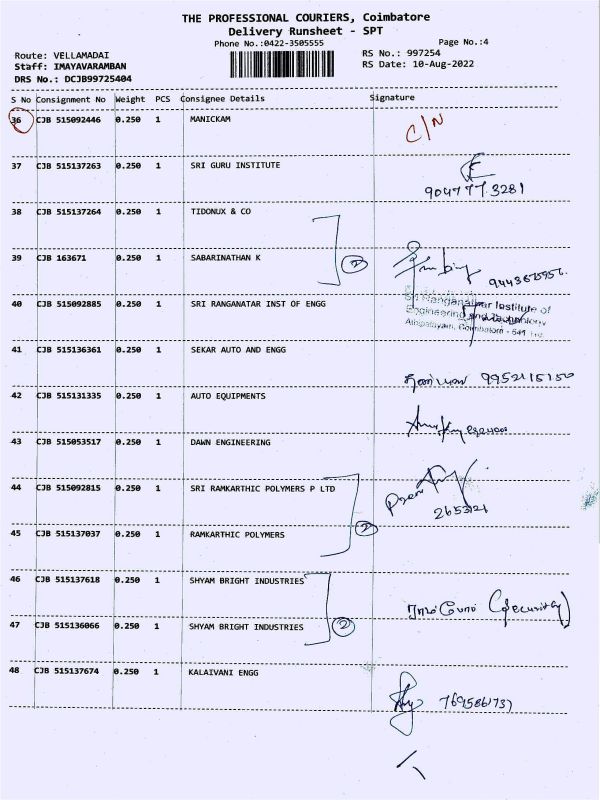 THE PROFESSIONAL COURIERS, Coimbatore
Delivery Runsheet - SPT
Phone No.:0422-3505555 Page No.:4
Route: VELLAMADAI RS No.: 997254
Staff: IMAYAVARAMBAN RS Date: 10-Aug-2022
DRS No.: DCJB99725404
S No Consignment No Weight PCS Consignee Details Signature
36 CJB 515092446 0.250 1 MANICKAM C/N
37 CJB 515137263 0.250 1 SRI GURU INSTITUTE
9047773281
38 CJB 515137264 0.250 1 TIDONUX & CO
39 CJB 163671 0.250 1 SABARINATHAN K 2
40 CJB 515092885 0.250 1 SRI RANGANATAR INST OF ENGG
Sri Ranganathar Institute of
Engineering and Technology
Athipalayam, Coimbatore - 641
41 CJB 515136361 0.250 1 SEKAR AUTO AND ENGG
9952115150
42 CJB 515131335 0.250 1 AUTO EQUIPMENTS
43 CJB 515053517 0.250 1 DAWN ENGINEERING
44 CJB 515092815 0.250 1 SRI RAMKARTHIC POLYMERS P LTD
2653121
45 CJB 515137037 0.250 1 RAMKARTHIC POLYMERS 2
46 CJB 515137618 0.250 1 SHYAM BRIGHT INDUSTRIES
(Security)
47 CJB 515136066 0.250 1 SHYAM BRIGHT INDUSTRIES 2
48 CJB 515137674 0.250 1 KALAIVANI ENGG
7695861737